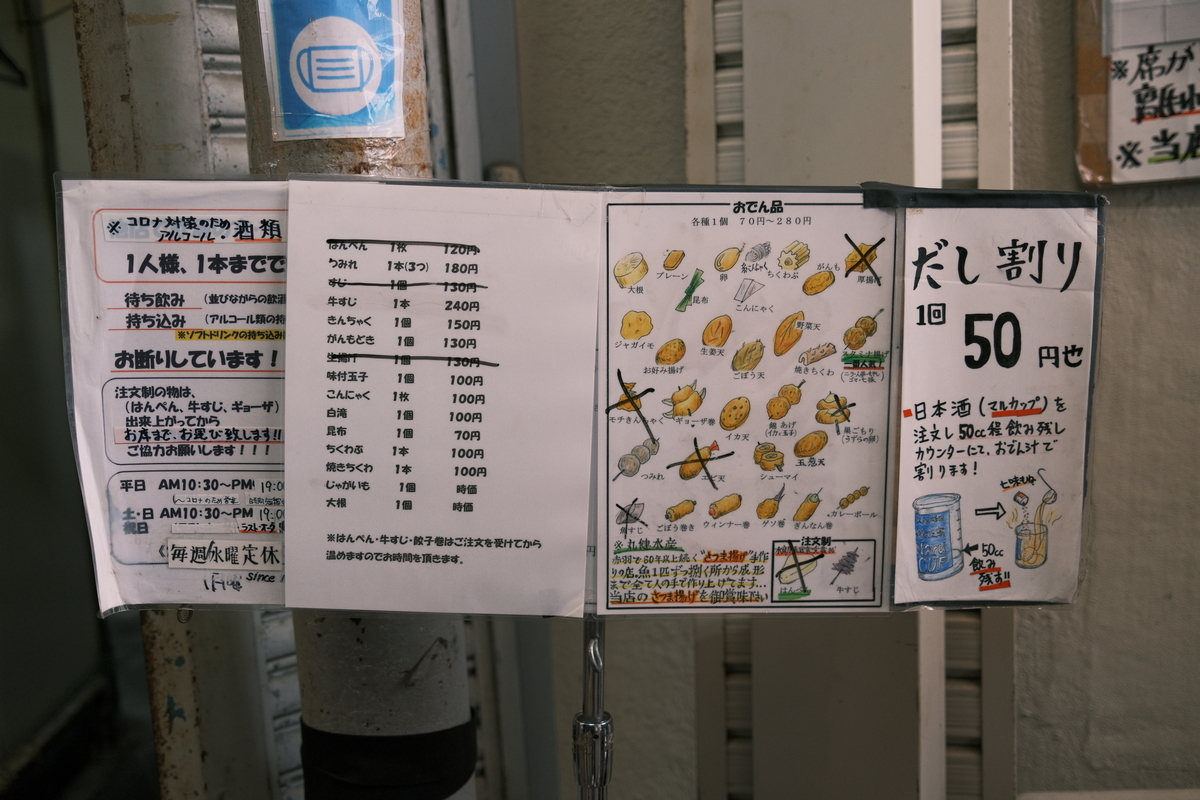 ※ コロナ対策のため
アルコール・酒類
1人様、1本までで
待ち飲み (並びながらの飲酒
持ち込み (アルコール類の持
※ソフトドリンクの持ち込み
お断りしています!
注文制の物は、
(はんぺん、牛すじ、ギョーザ)
出来上がってから
お席まで、お運び致します!!
ご協力お願いします!!!
平日 AM10:30〜PM 19:0
コロナのため営業
土・日 AM10:30〜PM 19:0
祝日
毎週水曜定休
since 1
はんぺん 1枚 120円
つみれ 1本(3つ) 180円
すじ 1個 130円
牛すじ 1本 240円
きんちゃく 1個 150円
がんもどき 1個 130円
生揚げ 1個 130円
味付玉子 1個 100円
こんにゃく 1枚 100円
白滝 1個 100円
昆布 1個 70円
ちくわぶ 1本 100円
焼きちくわ 1本 100円
じゃがいも 1個 時価
大根 1個 時価
※はんぺん・牛すじ・餃子巻はご注文を受けてから
温めますのでお時間を頂きます。
おでん品
各種1個 70円〜280円
大根 プレーン 昆布 卵 糸こんにゃく ちくわぶ がんも 厚揚
こんにゃく
ジャガイモ 生姜天 野菜天
お好み揚げ ごぼう天 焼きちくわ
モチきんちゃく ギョーザ巻 イカ天 巣ごもり
(うずらの卵)
つみれ エビ天 シューマイ 玉葱天
魚すじ ごぼう巻き ウィンナー巻 ゲソ巻 ぎんなん巻 カレーボール
※丸健水産
赤羽で60年以上続く"さつま揚げ"手作
りの店、魚1匹ずつ捌く所から成形
まで全て人の手で作り上げてます…
当店のさつま揚げを御賞味下さい
注文制
はんぺん 牛すじ
だし割り
1回 50円也
日本酒(マルカップ)を
注文し50cc程飲み残し
カウンターにて、おでん汁で
割ります!
七味
50cc
飲み
残す!!
※席が
離れ
※当店